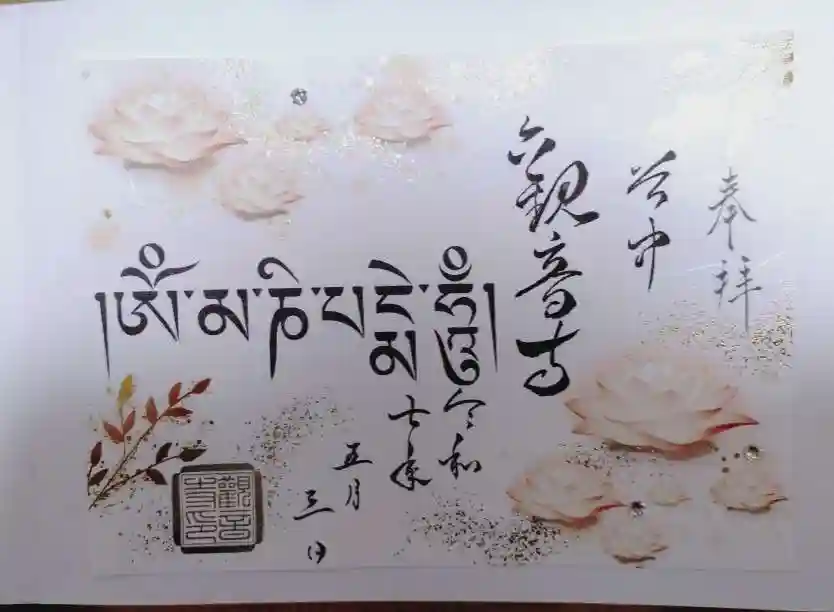 奉拝
谷中
觀音寺
།ཨོཾ་མ་ཎི་པདྨེ་ཧཱུྃ།
令和
七年
五月
三日
觀音
寺印